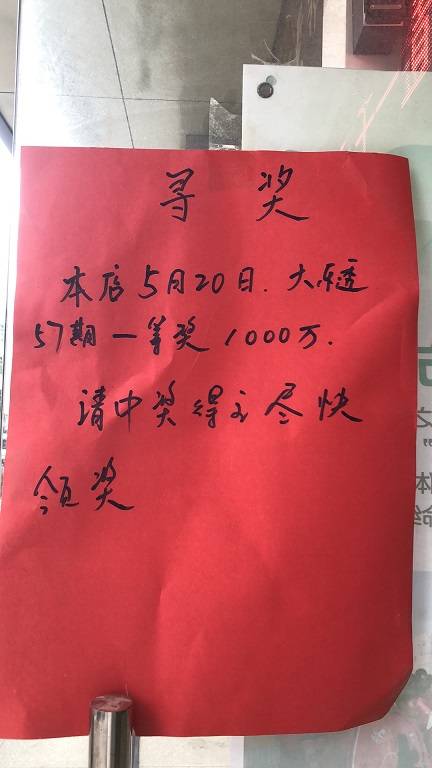 寻奖
本店5月20日.大乐透
57期一等奖1000万.
请中奖得主尽快
领奖